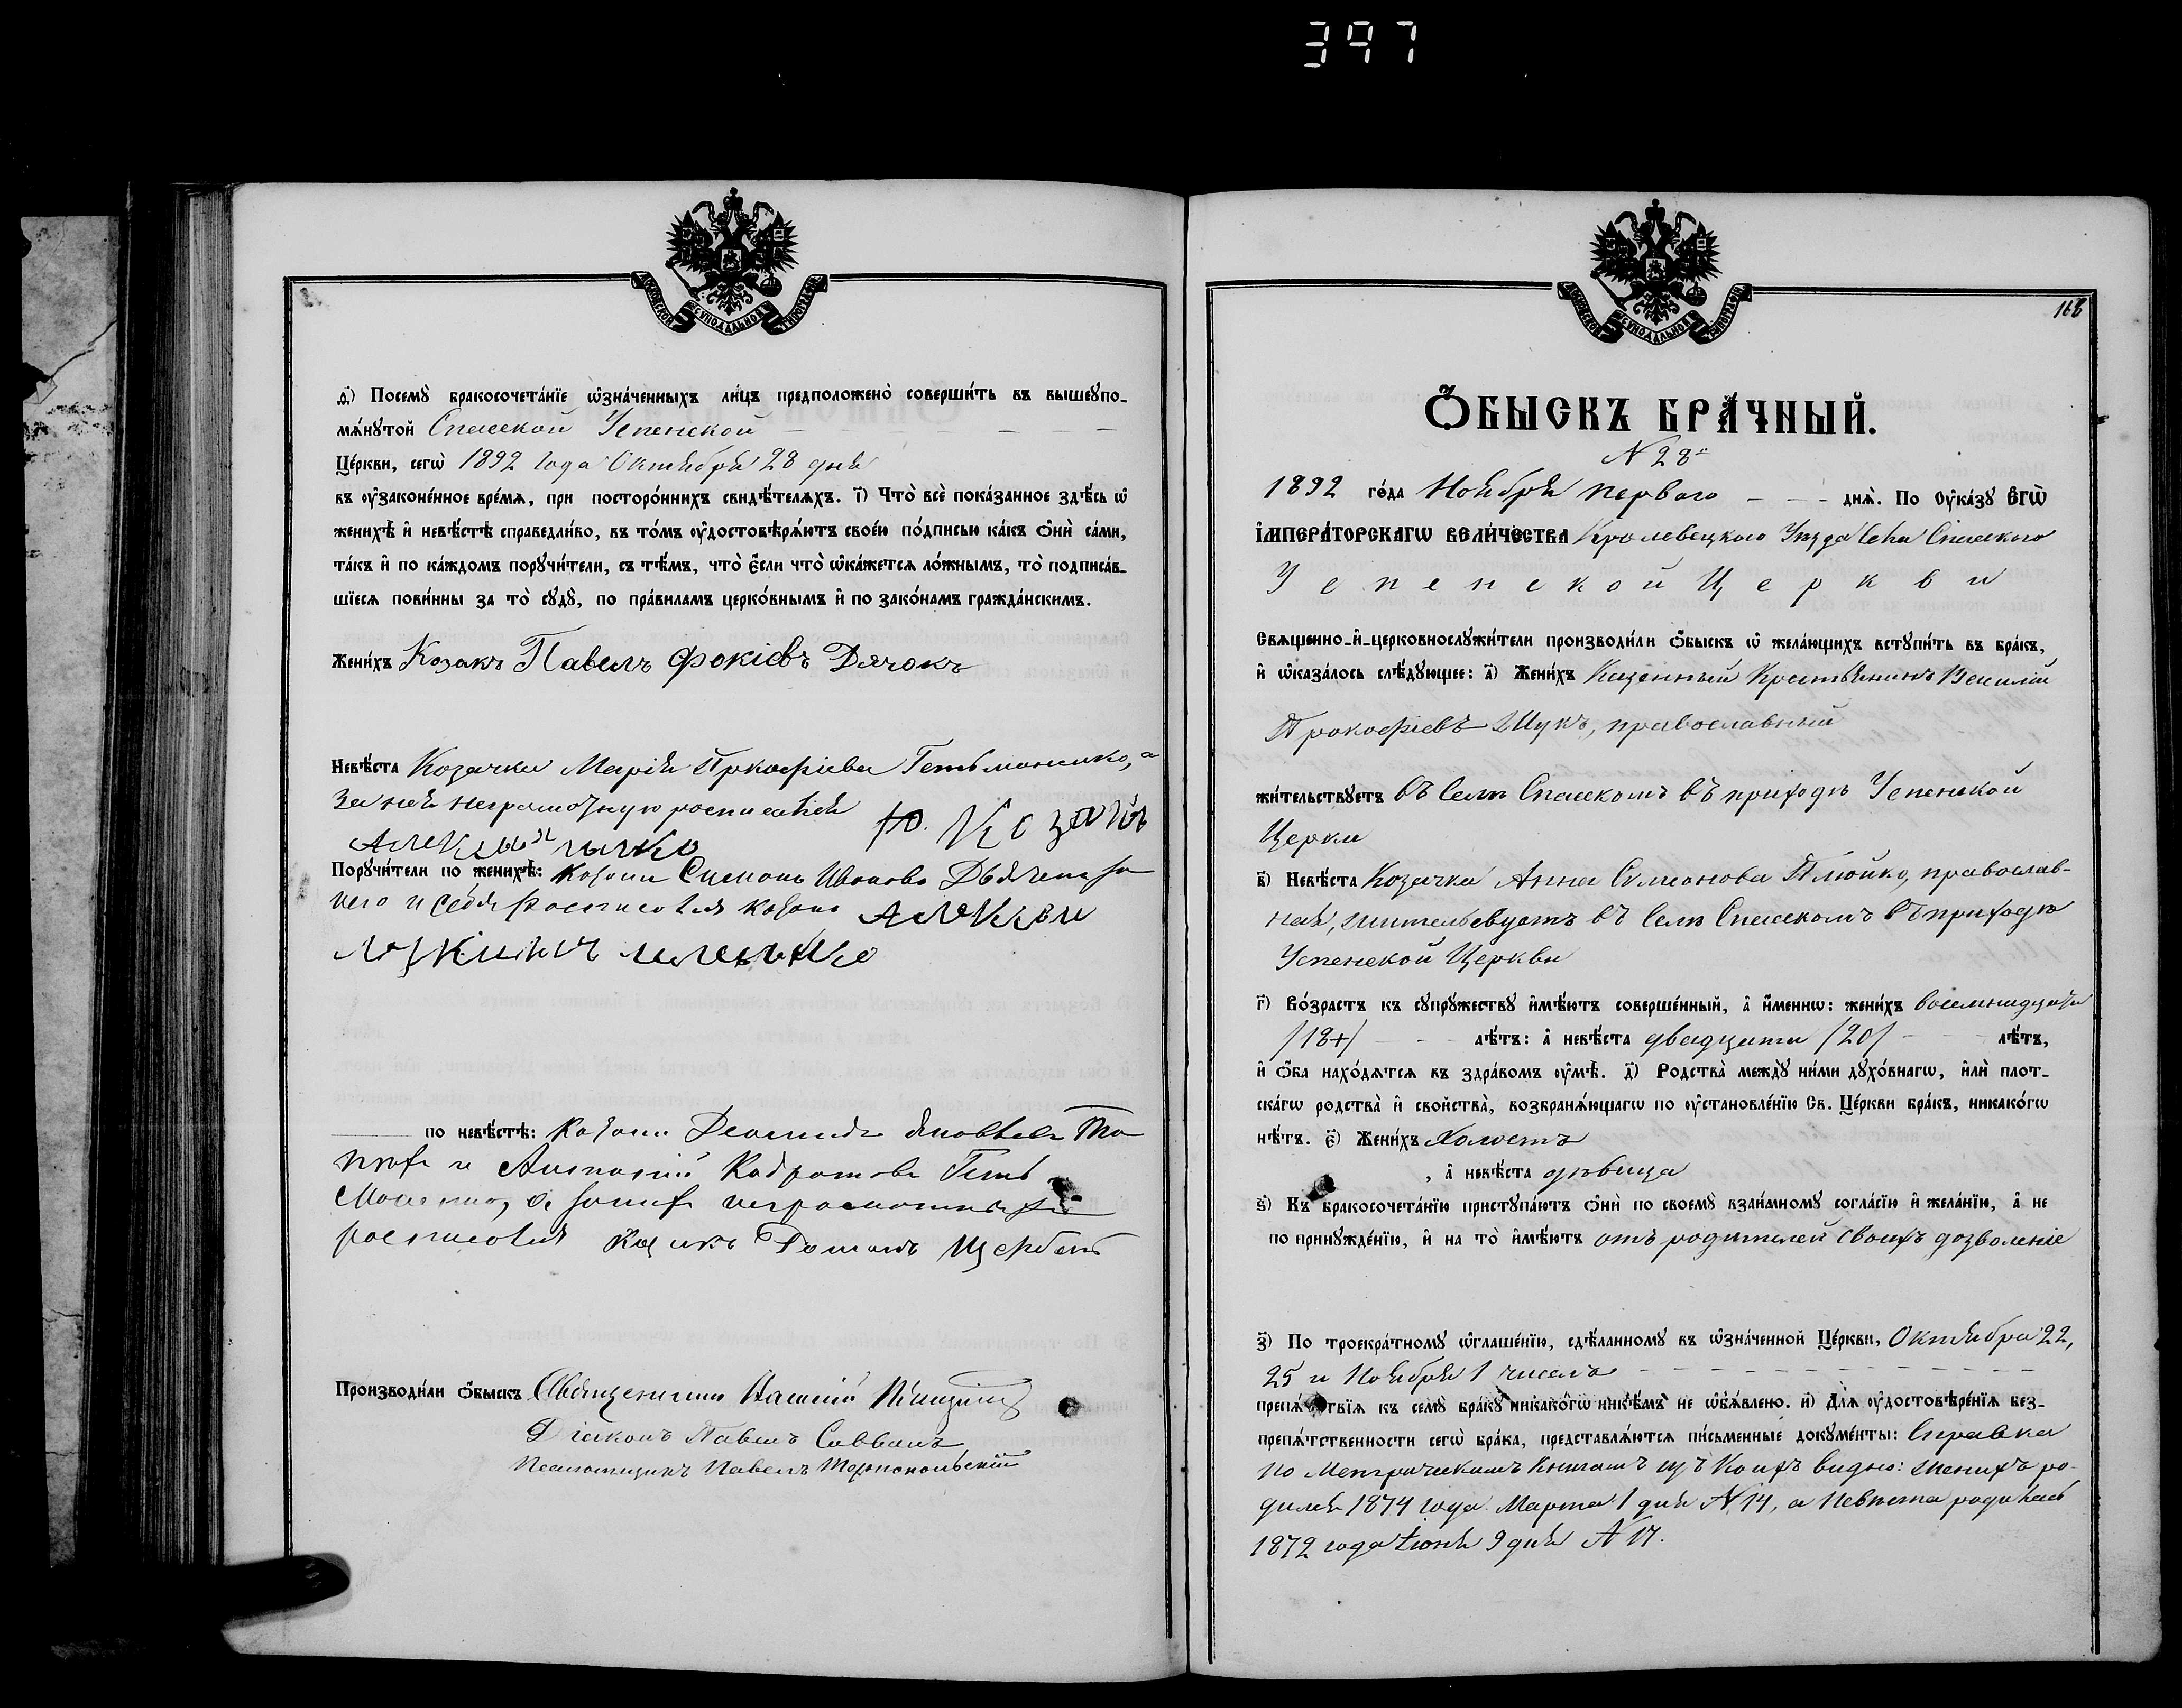 397
МОСКОВСКОЙ СѴНОДАЛЬНОЙ ТИПОГРАФІИ
ѳ҃) Посемꙋ̀ бракосочета́нїе ѡ҆зна́ченныхъ ли́цъ предположено̀ соверши́ть въ вышеꙋпо-
мѧ́нꙋтой Спасской Успенской
Це́ркви, сегѡ̀ 1892 года Октября 28 дня
въ ᲂу҆законе́нное вре́мѧ, при посторо́ннихъ свидѣ́телѧхъ. і҃) Что̀ всѐ пока́занное здѣ́сь ѡ҆
женихѣ̀ и҆ невѣ́стѣ справедли́во, въ то́мъ ᲂу҆достовѣрѧ́ютъ свое́ю по́дписью ка́къ ѻ҆нѝ са́ми,
та́къ и҆ по ка́ждомъ порꙋчи́тели, съ тѣ́мъ, что̀ є҆́сли что̀ ѡ҆ка́жетсѧ ло́жнымъ, то̀ подписа́в-
шїесѧ пови́нны за то̀ сꙋдꙋ̀, по пра́виламъ церко́внымъ и҆ по зако́намъ гражда́нскимъ.
Жени́хъ Козакъ Павелъ Фокіевъ Дячокъ
Невѣ́ста Козачка Марія Пркофіева Гетьманенко, а
за нея неграмотную росписался Козакъ
Порꙋчи́тели по женихѣ̀: Козаки Симонъ Ивановъ Дьяченко за
него и себя росписался козакъ Алексѣй
по невѣ́стѣ: Козаки Леонидъ
и Аѳанасій Кодратовъ Геть
маненко, а за нихъ неграмотныхъ
росписался Козакъ Романъ Щербакъ
Производи́ли ѻ҆́быскъ Священникъ Василій
Діаконъ Павелъ Саввичъ
Псаломщикъ Павелъ Тернопольскій
МОСКОВСКОЙ СѴНОДАЛЬНОЙ ТИПОГРАФІИ
168
Ѻ҆́БЫСКЪ БРА́ЧНЫЙ.
N 28й
1892 го́да Ноября перваго днѧ̀. По Оу҆ка́зꙋ Є҆Гѡ̀
І҆МПЕРА́ТОРСКАГѠ ВЕЛИ́ЧЕСТВА Кролевецкаго Уѣзда Села Спасскаго
Успенской Церкви
Свѧщенно-и҆-церковнослꙋжи́тели производи́ли ѻ҆́быскъ ѡ҆ жела́ющихъ встꙋпи́ть въ бра́къ,
и҆ ѡ҆каза́лось слѣ́дꙋющее: а҃) Жени́хъ Казенный Крестьянинъ Василій
Прокофіевъ Щукъ, православный
жи́тельствꙋетъ въ Селѣ Спасскомъ въ приходѣ Успенской
Церкви
в҃) Невѣ́ста Козачка Анна Симонова Плюйко, православ-
ная, жительсвуетъ въ Селѣ Спасскомъ въ приходѣ
Успенской Церкви
г҃) Во́зрастъ къ сꙋпрꙋ́жествꙋ и҆мѣ́ютъ соверше́нный, а҆ и҆́менно: жени́хъ восемнадцати
/18+/ лѣ́тъ: а҆ невѣ́ста двадцати /20/ лѣ́тъ,
и҆ ѻ҆́ба нахо́дѧтсѧ въ здра́вомъ ᲂу҆мѣ̀. д҃) Родства̀ междꙋ̀ ни́ми дꙋхо́внагѡ, и҆лѝ плот-
ска́гѡ родства̀ и҆ свойства̀, возбранѧ́ющагѡ по ᲂу҆становле́нїю Св. Це́ркви бра́къ, никако́гѡ
нѣ́тъ. є҃) Жени́хъ Холостъ
, а҆ невѣ́ста дѣвица
ѕ҃) Къ бракосочета́нїю пристꙋпа́ютъ ѻ҆нѝ по своемꙋ̀ взаи́мномꙋ согла́сїю и҆ жела́нїю, а҆ не
по принꙋжде́нїю, и҆ на то̀ и҆мѣ́ютъ отъ родителей своихъ дозволеніе
з҃) По троекра́тномꙋ ѡ҆глаше́нїю, сдѣ́ланномꙋ въ ѡ҆зна́ченной Це́ркви, Октября 22,
25 и Ноября 1 числъ
препѧ́тствїѧ къ семꙋ̀ бра́кꙋ никако́гѡ никѣ́мъ не ѡ҆б̾ѧ́влено. и҃) Длѧ̀ ᲂу҆достовѣре́нїѧ без-
препѧ́тственности сегѡ̀ бра́ка, представлѧ́ютсѧ пи́сьменные докꙋме́нты: Справка
по Метрическимъ Книгамъ изъ Коихъ видно: женихъ ро-
дился 1874 года Марта 1 дня N 14, а Невѣста родилась
1872 года Іюня 9 дня N 17.